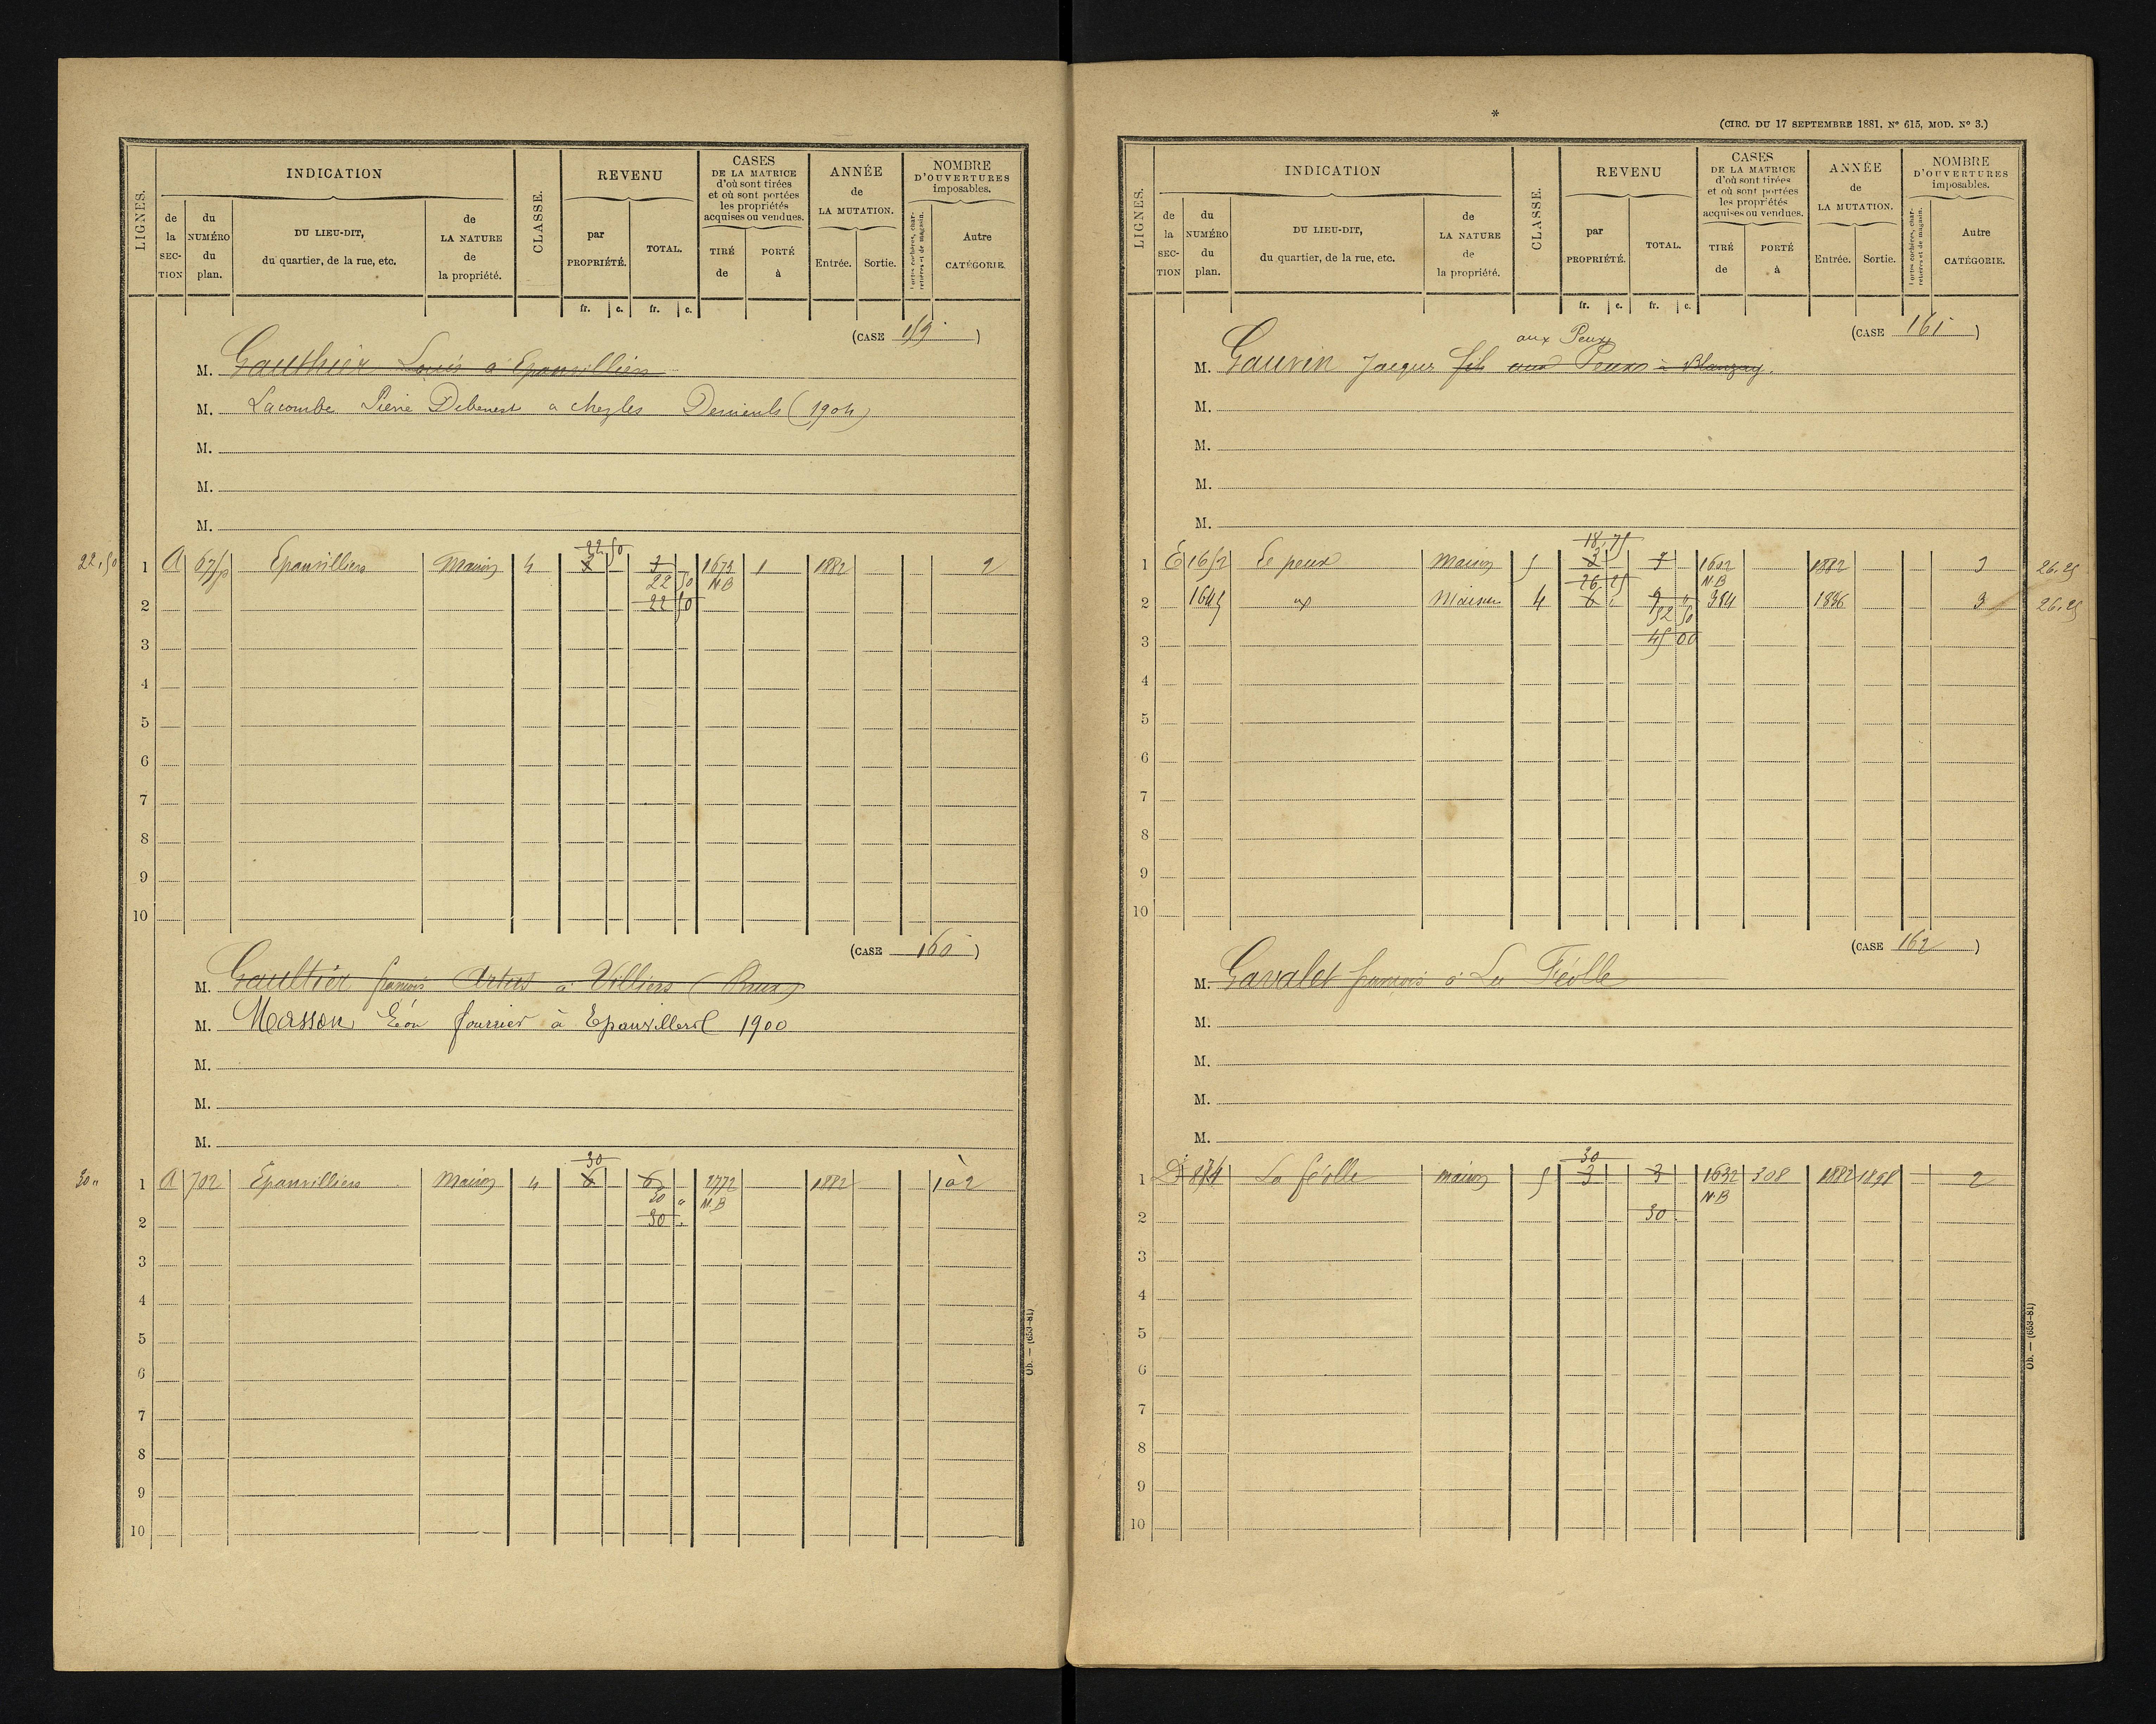 LIGNES.
INDICATION
de la SECTION
du NUMÉRO du plan.
DU LIEU-DIT, du quartier, de la rue, etc.
de LA NATURE de la propriété.
CLASSE.
REVENU
par PROPRIÉTÉ.
TOTAL.
CASES DE LA MATRICE d'où sont tirées et où sont portées les propriétés acquises ou vendues.
TIRÉ de
PORTÉ à
ANNÉE de LA MUTATION.
Entrée.
Sortie.
NOMBRE D'OUVERTURES imposables.
Portes cochères, charretières et de magasin.
Autre CATÉGORIE.
fr. c. fr. c.
(CASE 159)
M. Gauthier Louis à Epanvilliers
M. Lacombe Pierre Debenest a chez les (1904)
M.
M.
M.
22,50
22 50
1 A Epanvilliers Maison 4 3 3 1673 1 1882 2
22 50 N.B
2 22 50
3
4
5
6
7
8
9
10
(CASE 160)
M. Gaultier françois Artus à Villiers (Brux)
M. Masson Léon fourrier à 1900
M.
M.
M.
30 "
30
1 A 702 Epanvilliers Maison 4 6 6 2772 1882 1 à 2
30 " N.B
2 30
3
4
5
6
7
8
9
10
Ob. — (653-81)
*
(CIRC. DU 17 SEPTEMBRE 1881, N° 615, MOD. N° 3.)
LIGNES.
INDICATION
de la SECTION
du NUMÉRO du plan.
DU LIEU-DIT, du quartier, de la rue, etc.
de LA NATURE de la propriété.
CLASSE.
REVENU
par PROPRIÉTÉ.
TOTAL.
CASES DE LA MATRICE d'où sont tirées et où sont portées les propriétés acquises ou vendues.
TIRÉ de
PORTÉ à
ANNÉE de LA MUTATION.
Entrée.
Sortie.
NOMBRE D'OUVERTURES imposables.
Portes cochères, charretières et de magasin.
Autre CATÉGORIE.
fr. c. fr. c.
(CASE 161)
aux Peux
M. Gauvin Jacques fils aux Peux à Blanzay.
M.
M.
M.
M.
18,75
1 E 1652 Le peux Maison 5 3 1602 1882 3 26.25
26.25 N.B
2 1645 Maison 4 6 9 384 1886 3 26.25
52 50
3 45 00
4
5
6
7
8
9
10
(CASE 162)
M. Gavalet françois à La Féolle
M.
M.
M.
M.
30
1 D 874 La féolle maison 5 3 3 1632 308 1882 1898 2
N.B
2 30
3
4
5
6
7
8
9
10
Ob. — (653-81)